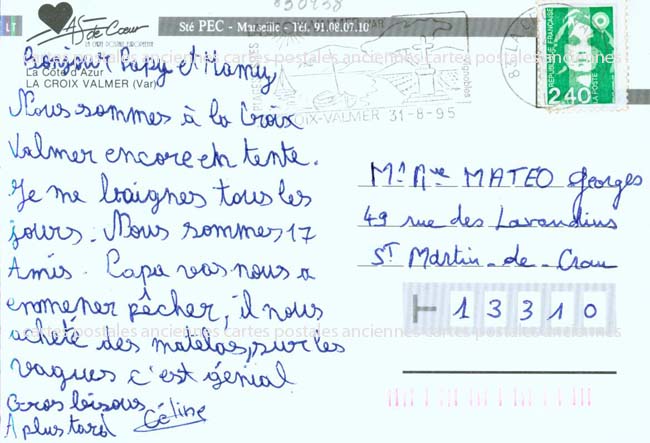 LT
AS de Cœur
LA CARTE POSTALE EUROPÉENNE
Sté PEC - Marseille - Tél. 91.08.07.10
030458
Bonjour Papy et Mamy,
La Côte d'Azur
LA CROIX VALMER (Var)
Nous sommes à la Croix
Valmer encore en tente.
Je me baignes tous les
jours. Nous sommes 17
Amis. Papa vas nous a
emmener pêcher, il nous
acheté des matelas, sur les
vagues c'est génial
Gros bisous
A plus tard Céline
CROIX-VALMER 31-8-95
83 LA
RÉPUBLIQUE FRANÇAISE
LA POSTE
2,40
Mr Mme MATEO Georges
49 rue des Lavandins
ST Martin-de-Crau
13310
cartes postales anciennes cartes postales anciennes cartes postales anciennes
cartes postales anciennes cartes postales anciennes cartes postales anciennes